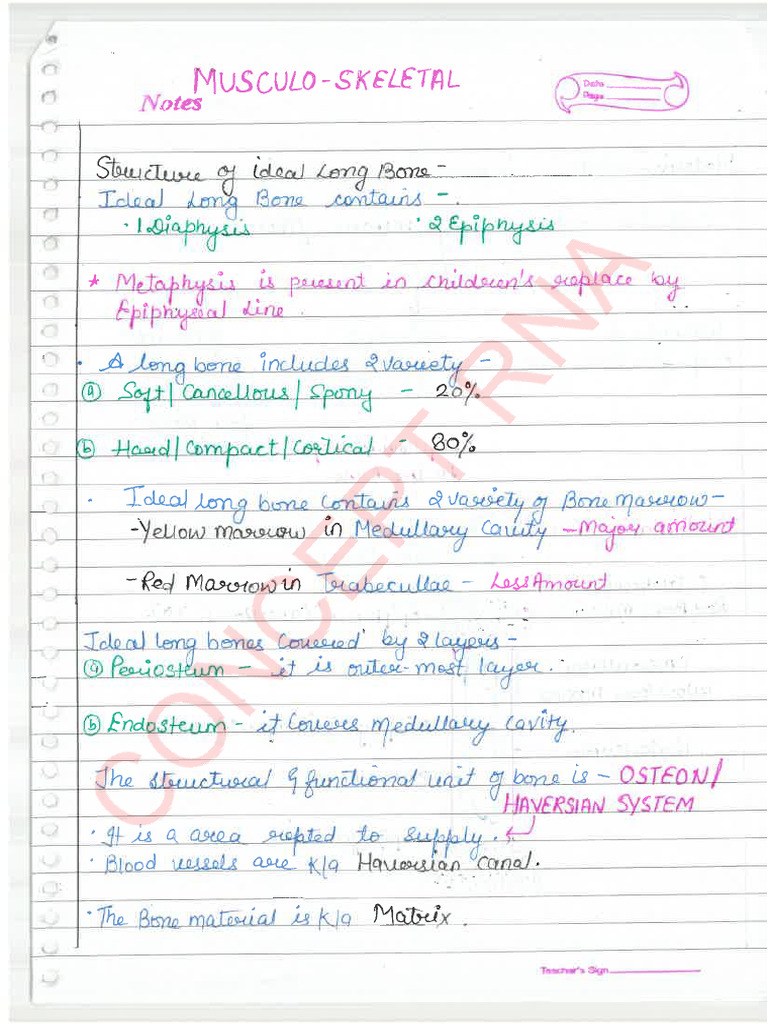 MUSCULO-SKELETAL
Notes
Date
Page
Structure of ideal Long Bone -
Ideal Long Bone contains -
· 1 Diaphysis · 2 Epiphysis
* Metaphysis is present in children's replace by
Epiphyseal Line.
· A long bone includes 2 variety -
ⓐ Soft/Cancellous/Spony - 20%
ⓑ Hard/Compact/Cortical - 80%
· Ideal long bone contains 2 variety of Bone marrow -
- Yellow marrow in Medullary Cavity - Major amount
- Red Marrow in Trabecullae - Less Amount
Ideal long bones covered by 2 layers -
ⓐ Periosteum - it is outer-most layer.
ⓑ Endosteum - it covers medullary cavity.
The structural & functional unit of bone is - OSTEON/
HAVERSIAN SYSTEM
· It is a area to supply.
· Blood vessels are k/a Haversian canal.
· The Bone material is k/a Matrix.
Teacher's Sign
CONCEPT RNA